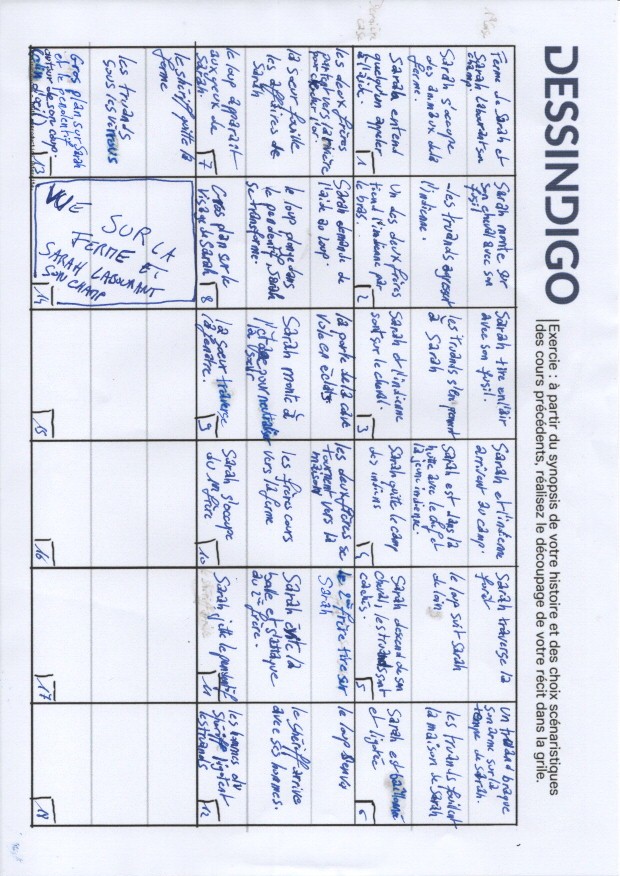 DESSINDIGO
Exercie : à partir du synopsis de votre histoire et des choix scénaristiques
des cours précédents, réalisez le découpage de votre récit dans la grile.
Ferme de Sarah et
Sarah labourant son
champ.
Sarah s'occupe
des animaux de la
ferme.
Sarah entend
quelqu'un appeler
à l'aide.
1
Sarah monte sur
son cheval avec son
fusil
les truands agressent
l'indienne.
Un des deux frères
tient l'indienne par
le bras.
2
Sarah tire en l'air
avec son fusil.
les truands s'en prennent
à Sarah
Sarah et l'indienne
sont sur le cheval.
3
Sarah et l'indienne
arrivent au camp.
Sarah est dans la
hutte avec le loup et
la jeune indienne.
Sarah quitte le camp
des indiens
4
Sarah traverse la
forêt
le loup suit Sarah
de loin
Sarah descend de son
cheval, les truands sont
cachés.
5
Un truand braque
son arme sur la
tempe de Sarah.
les truands fouillent
la maison de Sarah
Sarah est baillonnée
et ligotée
6
les deux frères
partent vers la rivière
pour chercher l'or.
la soeur fouille
les affaires de
Sarah
le loup apparaît
aux yeux de
Sarah.
7
Sarah demande de
l'aide au loup.
le loup plonge dans
le pendentif, Sarah
se transforme.
Gros plan sur le
visage de Sarah
8
la porte de la cave
vole en éclats
Sarah monte à
l'étage pour neutraliser
la soeur
la soeur traverse
la fenêtre.
9
les deux frères se
tournent vers la
maison
les frères cours
vers la ferme
Sarah s'occupe
du 1er frère
10
le 2è frère tire sur
Sarah
Sarah évite la
balle et s'attaque
au 2è frère.
Sarah jette le pendentif
11
le loup
le shérif arrive
avec ses hommes.
les hommes du
shérif ligotent
les truands
12
le shérif quitte la
ferme
les truands
sous les verrous
Gros plan sur Sarah
et le pendentif
autour de son coup
(clin d'oeil)
13
VUE SUR LA
FERME ET
SARAH LABOURANT
SON CHAMP
14
15
16
17
18